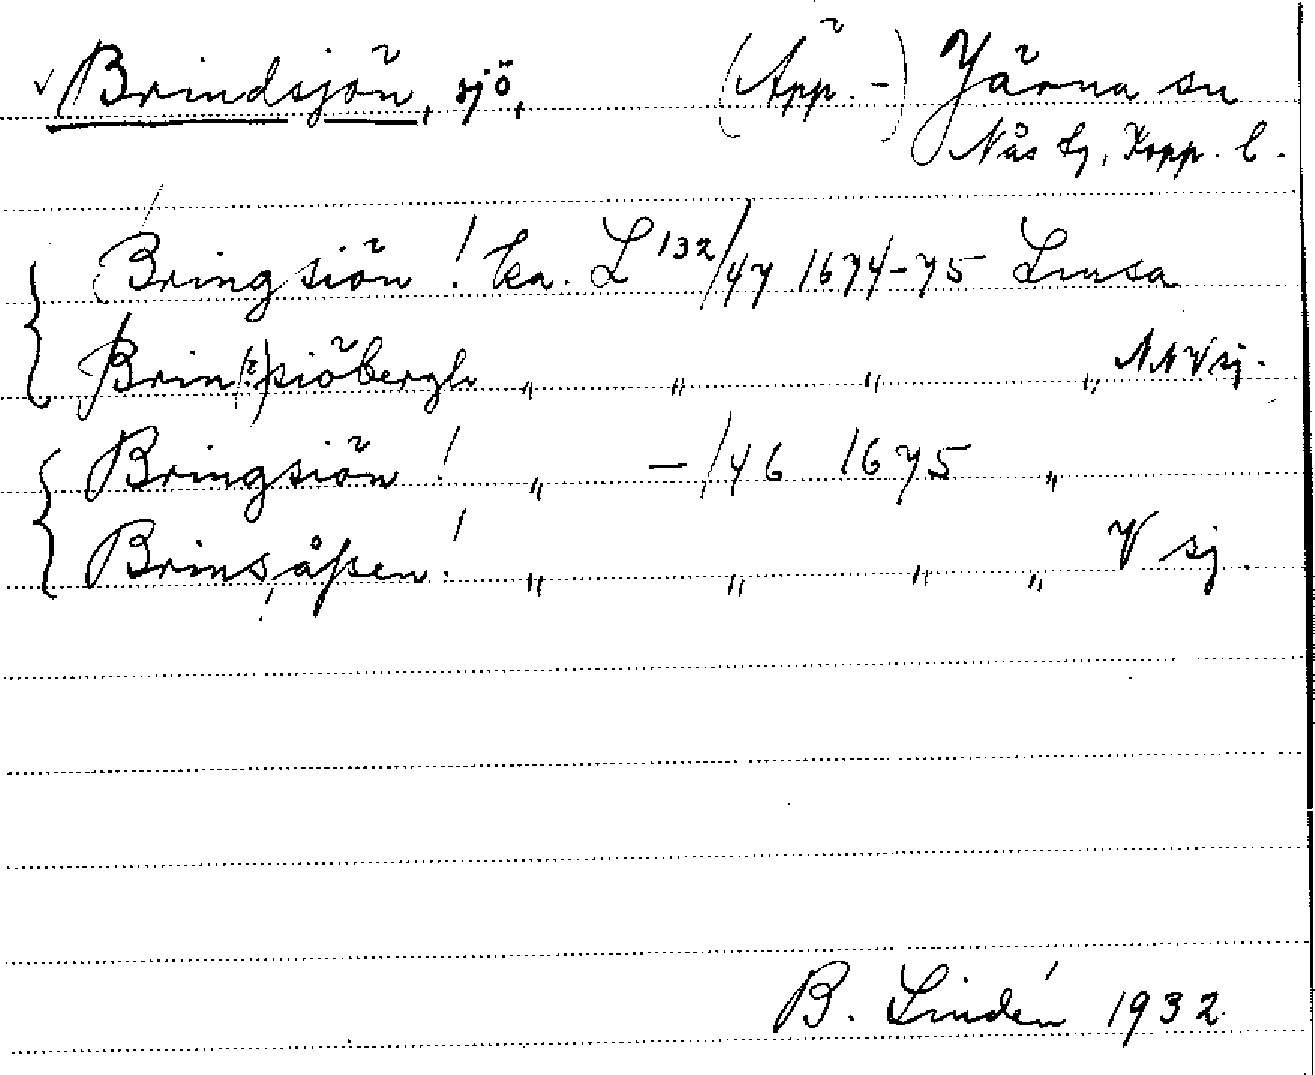 Brindsjön, sjö, (Äpp.-) Järna sn
Nås tg, Kopp. l.
Bringsiön! ka. L 132/47 1674-75 Limsa
Brin(?)siöbergh " " " " NNV sj.
Bringsiön! " -/46 1675 "
Brinsåsen! " " " " V sj.
B. Lindén 1932